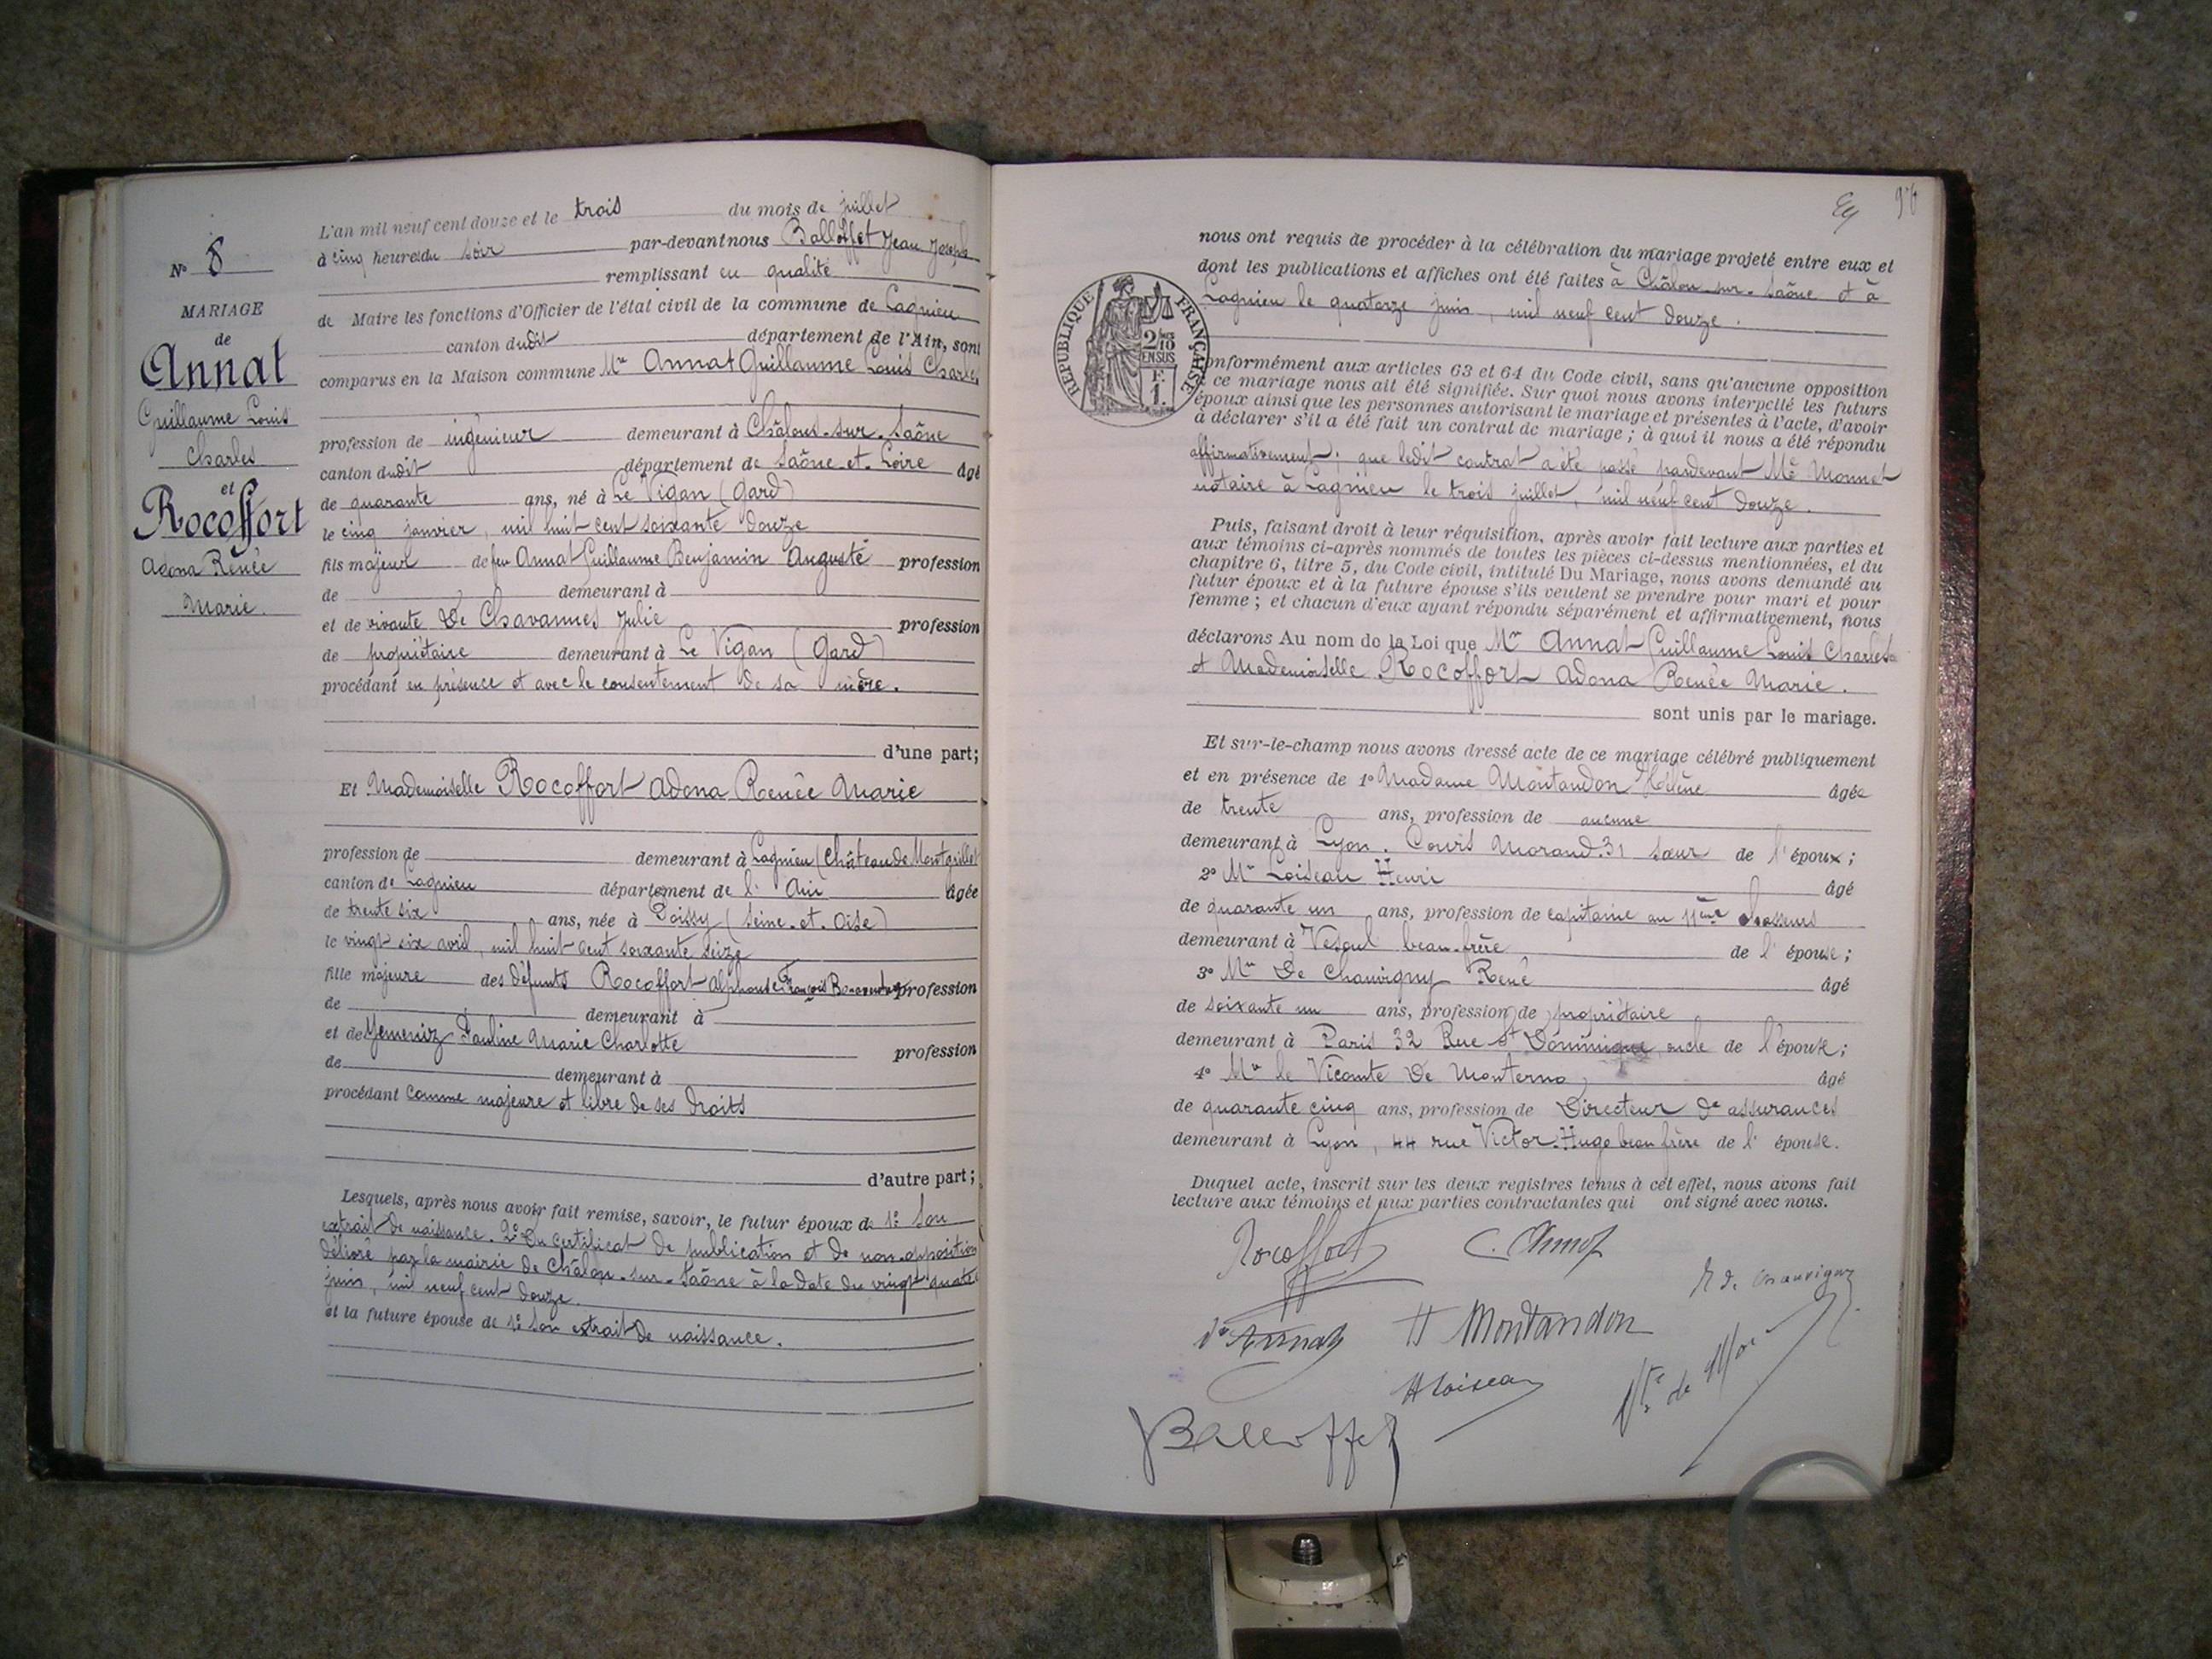 N° 8
MARIAGE
de
Annat
Guillaume Louis
Charles
et
Rocoffort
Adona Renée
Marie.
L'an mil neuf cent douze et le trois du mois de juillet
à cinq heures du soir par-devant nous Balloffet Jean Joseph
remplissant en qualité
de Maire les fonctions d'Officier de l'état civil de la commune de Lagnieu
canton dudit département de l'Ain, sont
comparus en la Maison commune Mr Annat Guillaume Louis Charles
profession de ingénieur demeurant à Châlons-sur-Saône
canton dudit département de Saône-et-Loire âgé
de quarante ans, né à Le Vigan (Gard)
le cinq janvier, mil huit cent soixante douze
fils majeur de feu Annat Guillaume Benjamin Auguste profession
de demeurant à
et de vivante De Chavannes Julie profession
de propriétaire demeurant à Le Vigan (Gard)
procédant en présence et avec le consentement de sa mère.
d'une part;
Et Mademoiselle Rocoffort Adona Renée Marie
profession de demeurant à Lagnieu (Château de Montgrillet
canton de Lagnieu département de l'Ain âgée
de trente six ans, née à Poissy (Seine-et-Oise)
le vingt six avril, mil huit cent soixante seize
fille majeure des défunts Rocoffort Alphonse François Bonaventure profession
de demeurant à
et de Yemeniz Pauline Marie Charlotte profession
de demeurant à
procédant comme majeure et libre de ses droits
d'autre part;
Lesquels, après nous avoir fait remise, savoir, le futur époux de 1° Son
extrait de naissance. 2° Du certificat de publication et de non-opposition
délivré par la mairie de Châlon-sur-Saône à la date du vingt quatre
juin, mil neuf cent douze.
et la future épouse de 1° Son extrait de naissance.
96
nous ont requis de procéder à la célébration du mariage projeté entre eux et
dont les publications et affiches ont été faites à Châlon-sur-Saône et à
Lagnieu le quatorze juin, mil neuf cent douze.
RÉPUBLIQUE FRANÇAISE
2/10 EN SUS
F.
1.
Conformément aux articles 63 et 64 du Code civil, sans qu'aucune opposition
à ce mariage nous ait été signifiée. Sur quoi nous avons interpellé les futurs
époux ainsi que les personnes autorisant le mariage et présentes à l'acte, d'avoir
à déclarer s'il a été fait un contrat de mariage; à quoi il nous a été répondu
affirmativement; que ledit contrat a été passé pardevant Me Monnet
notaire à Lagnieu le trois juillet, mil neuf cent douze.
Puis, faisant droit à leur réquisition, après avoir fait lecture aux parties et
aux témoins ci-après nommés de toutes les pièces ci-dessus mentionnées, et du
chapitre 6, titre 5, du Code civil, intitulé Du Mariage, nous avons demandé au
futur époux et à la future épouse s'ils veulent se prendre pour mari et pour
femme; et chacun d'eux ayant répondu séparément et affirmativement, nous
déclarons Au nom de la Loi que Mr Annat Guillaume Louis Charles
et Mademoiselle Rocoffort Adona Renée Marie.
sont unis par le mariage.
Et sur-le-champ nous avons dressé acte de ce mariage célébré publiquement
et en présence de 1° Madame Montandon Hélène âgée
de trente ans, profession de aucune
demeurant à Lyon. Cours Morand. 31 sœur de l'époux;
2° Mr Loiseau Henri âgé
de quarante un ans, profession de capitaine au 11ème chasseurs
demeurant à Vesoul beau-frère de l'épouse;
3° Mr De Chauvigny René âgé
de soixante un ans, profession de propriétaire
demeurant à Paris 32 Rue St Dominique oncle de l'épouse;
4° Mr le Vicomte de Monterno, âgé
de quarante cinq ans, profession de Directeur d'assurances
demeurant à Lyon, 44 rue Victor-Hugo beau frère de l'épouse.
Duquel acte, inscrit sur les deux registres tenus à cet effet, nous avons fait
lecture aux témoins et aux parties contractantes qui ont signé avec nous.
Rocoffort C. Annat
R de Chauvigny
Vve Annat H Montandon
H Loiseau Vte de
Balloffet